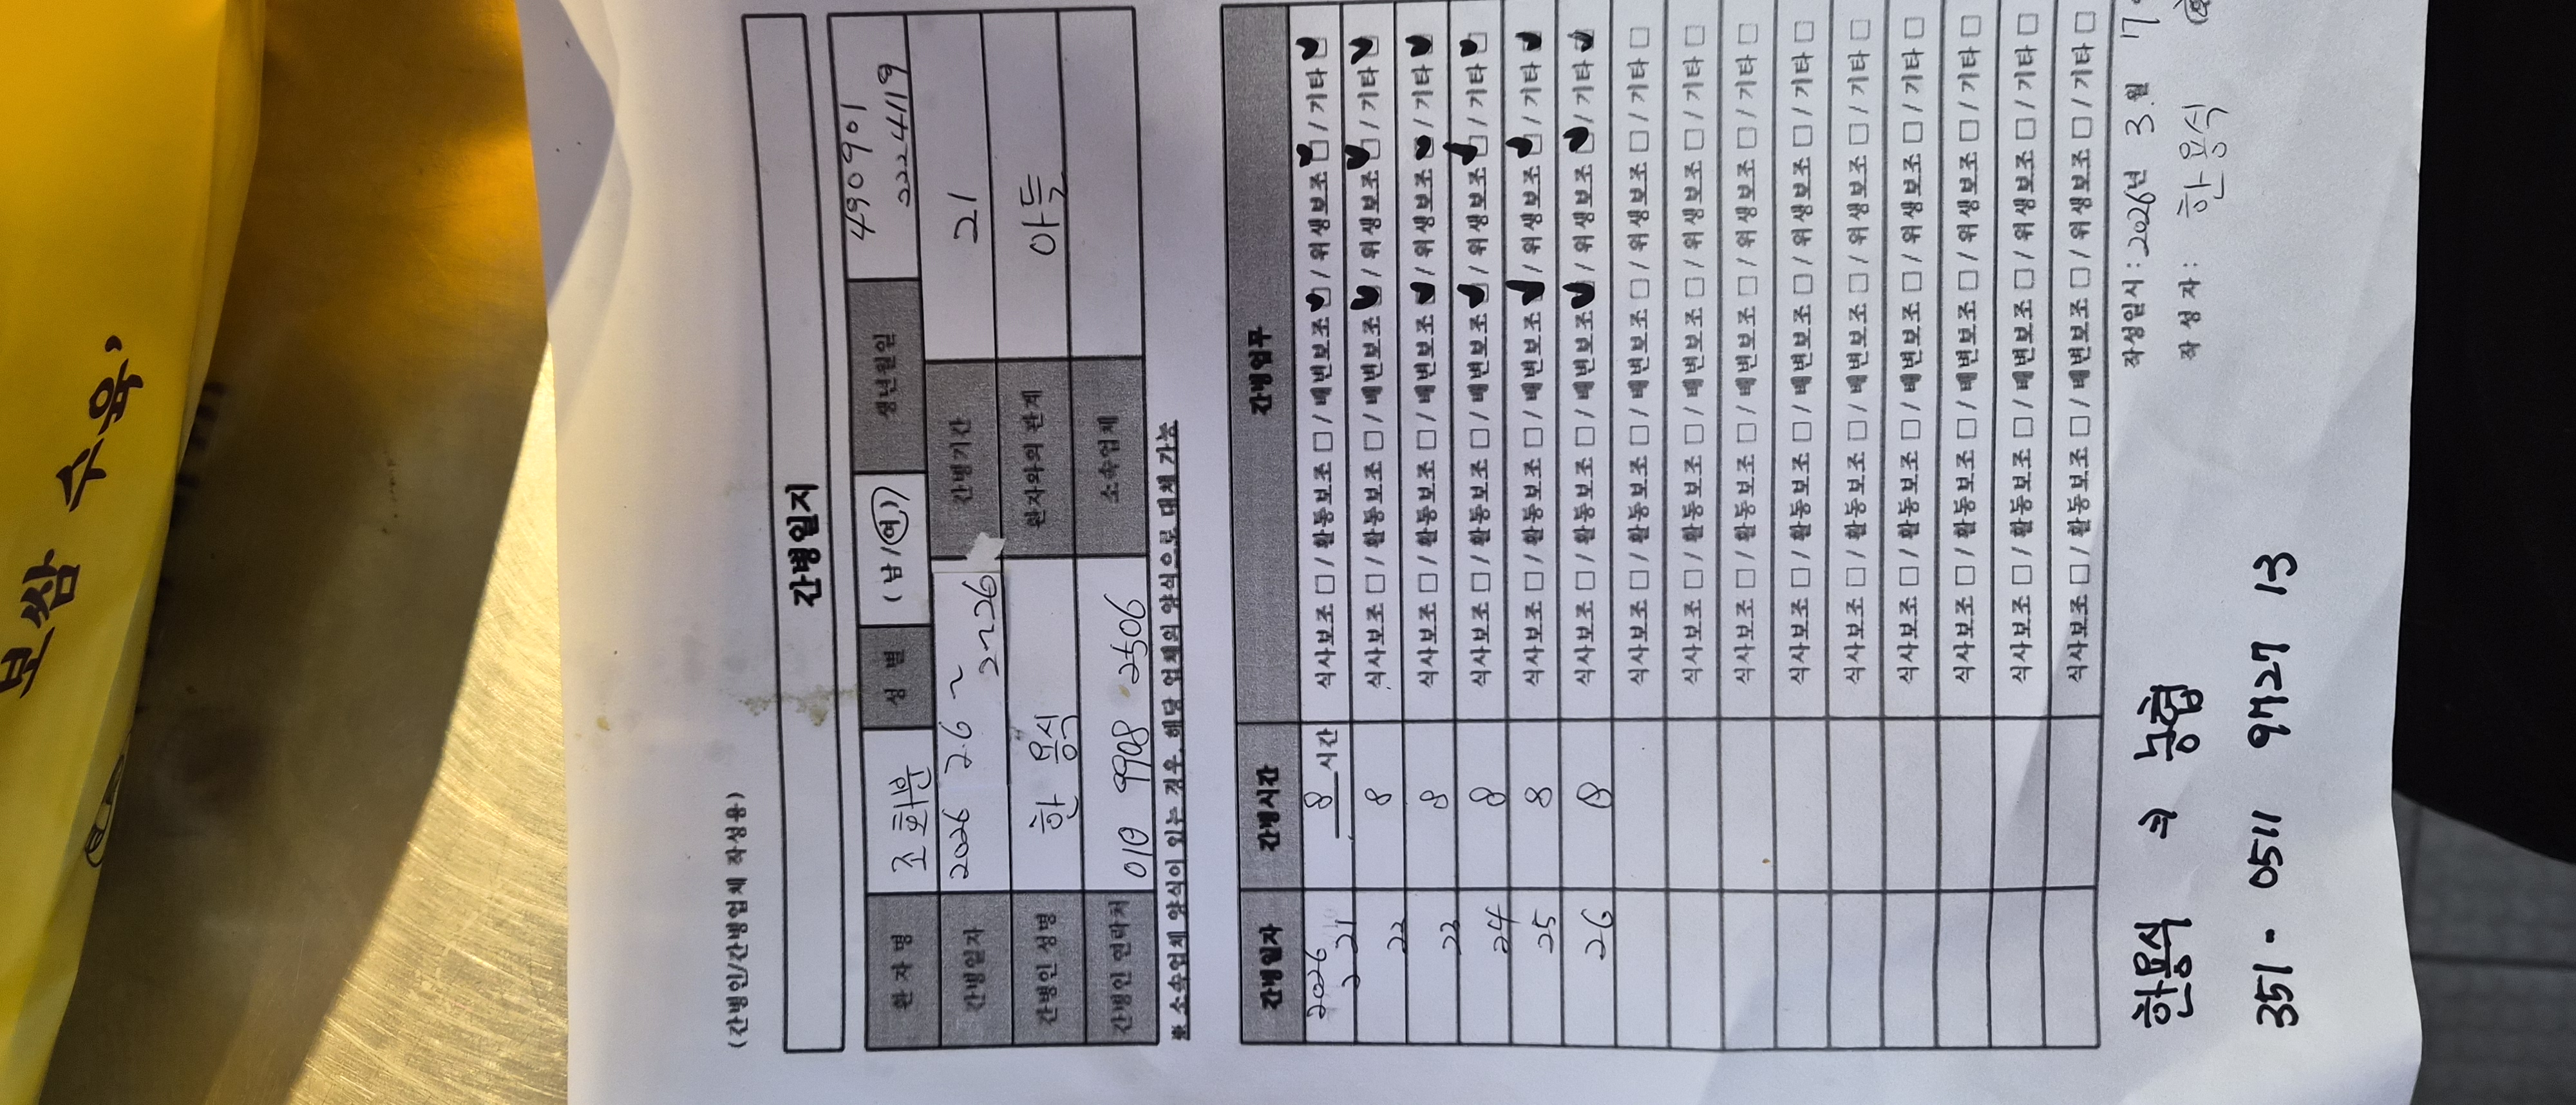 보쌈 수육
(간병인/간병업체 작성용)
간병일지
환 자 명 조화분 성 별 ( 남 / 여 ) 생년월일 490901 2224119
간병일자 2026 2.6 ~ 2~26 간병기간 21
간병인 성명 한 용식 환자와의 관계 아들
간병인 연락처 010 9908 2506 소속업체
※ 소속업체 양식이 있는 경우, 해당 업체의 양식으로 대체 가능
간병일자 간병시간 간병업무
2026 2 21 8 시간 식사보조 □ / 활동보조 □ / 배변보조 ☑ / 위생보조 ☑ / 기타 ☑
22 8 식사보조 □ / 활동보조 □ / 배변보조 ☑ / 위생보조 ☑ / 기타 ☑
23 8 식사보조 □ / 활동보조 □ / 배변보조 ☑ / 위생보조 ☑ / 기타 ☑
24 8 식사보조 □ / 활동보조 □ / 배변보조 ☑ / 위생보조 ☑ / 기타 ☑
25 8 식사보조 □ / 활동보조 □ / 배변보조 ☑ / 위생보조 ☑ / 기타 ☑
26 8 식사보조 □ / 활동보조 □ / 배변보조 ☑ / 위생보조 ☑ / 기타 ☑
식사보조 □ / 활동보조 □ / 배변보조 □ / 위생보조 □ / 기타 □
식사보조 □ / 활동보조 □ / 배변보조 □ / 위생보조 □ / 기타 □
식사보조 □ / 활동보조 □ / 배변보조 □ / 위생보조 □ / 기타 □
식사보조 □ / 활동보조 □ / 배변보조 □ / 위생보조 □ / 기타 □
식사보조 □ / 활동보조 □ / 배변보조 □ / 위생보조 □ / 기타 □
식사보조 □ / 활동보조 □ / 배변보조 □ / 위생보조 □ / 기타 □
식사보조 □ / 활동보조 □ / 배변보조 □ / 위생보조 □ / 기타 □
식사보조 □ / 활동보조 □ / 배변보조 □ / 위생보조 □ / 기타 □
식사보조 □ / 활동보조 □ / 배변보조 □ / 위생보조 □ / 기타 □
작성일시 : 2026년 3.월 17
작 성 자 : 한용식
한용식 농협
351 - 0511 9727 13